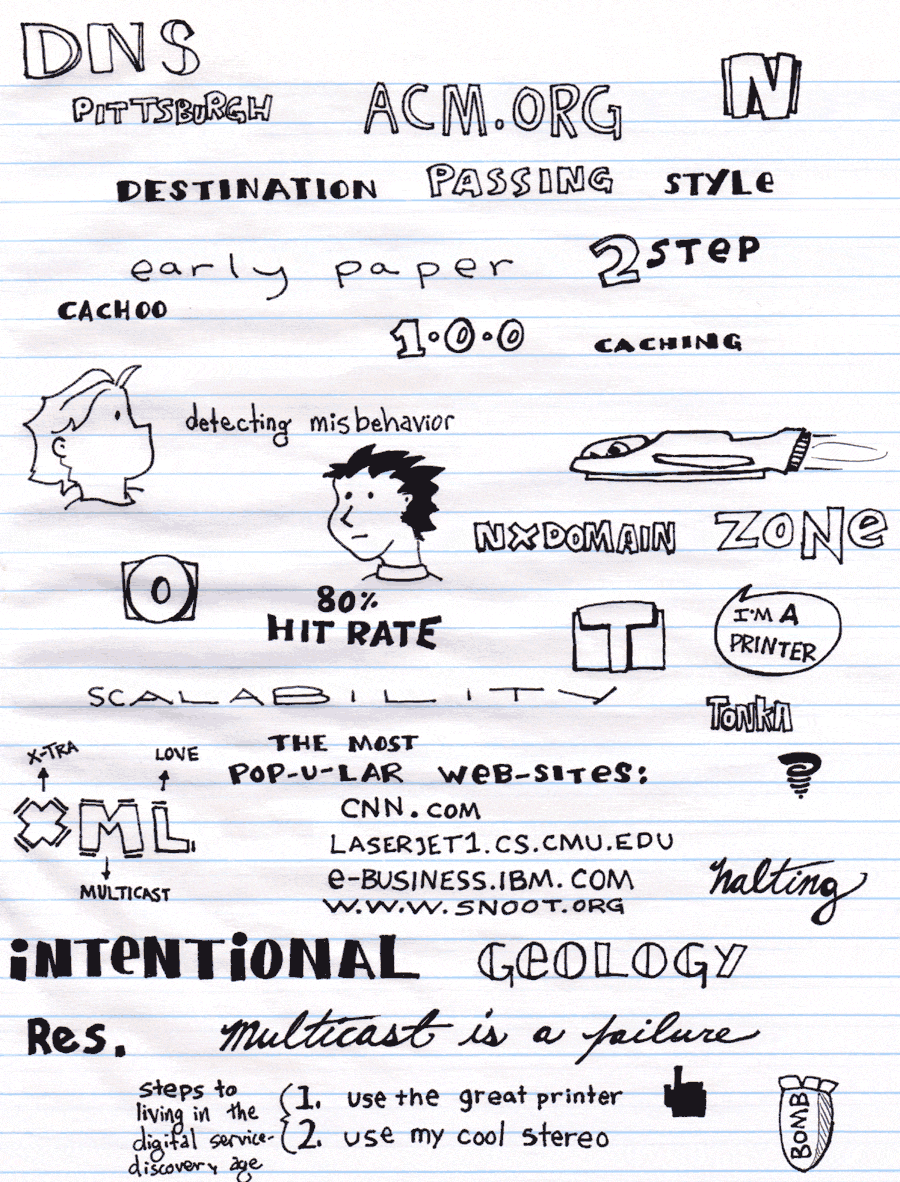 DNS
PITTSBURGH
ACM.ORG
N
DESTINATION PASSING STYLE
early paper
2 STEP
CACHOO
1·0·0
CACHING
detecting misbehavior
NXDOMAIN
ZONE
O
80%
HIT RATE
T
I'M A
PRINTER
SCALABILITY
TONKA
X-TRA
LOVE
XML
MULTICAST
THE MOST
POP-U-LAR WEB-SITES:
CNN.COM
LASERJET1.CS.CMU.EDU
e-BUSINESS.IBM.COM
W.W.W.SNOOT.ORG
halting
iNTeNTiONAL GeOLOGY
Res.
Multicast is a failure
steps to
living in the
digital service-
discovery age
1. use the great printer
2. use my cool stereo
BOMB